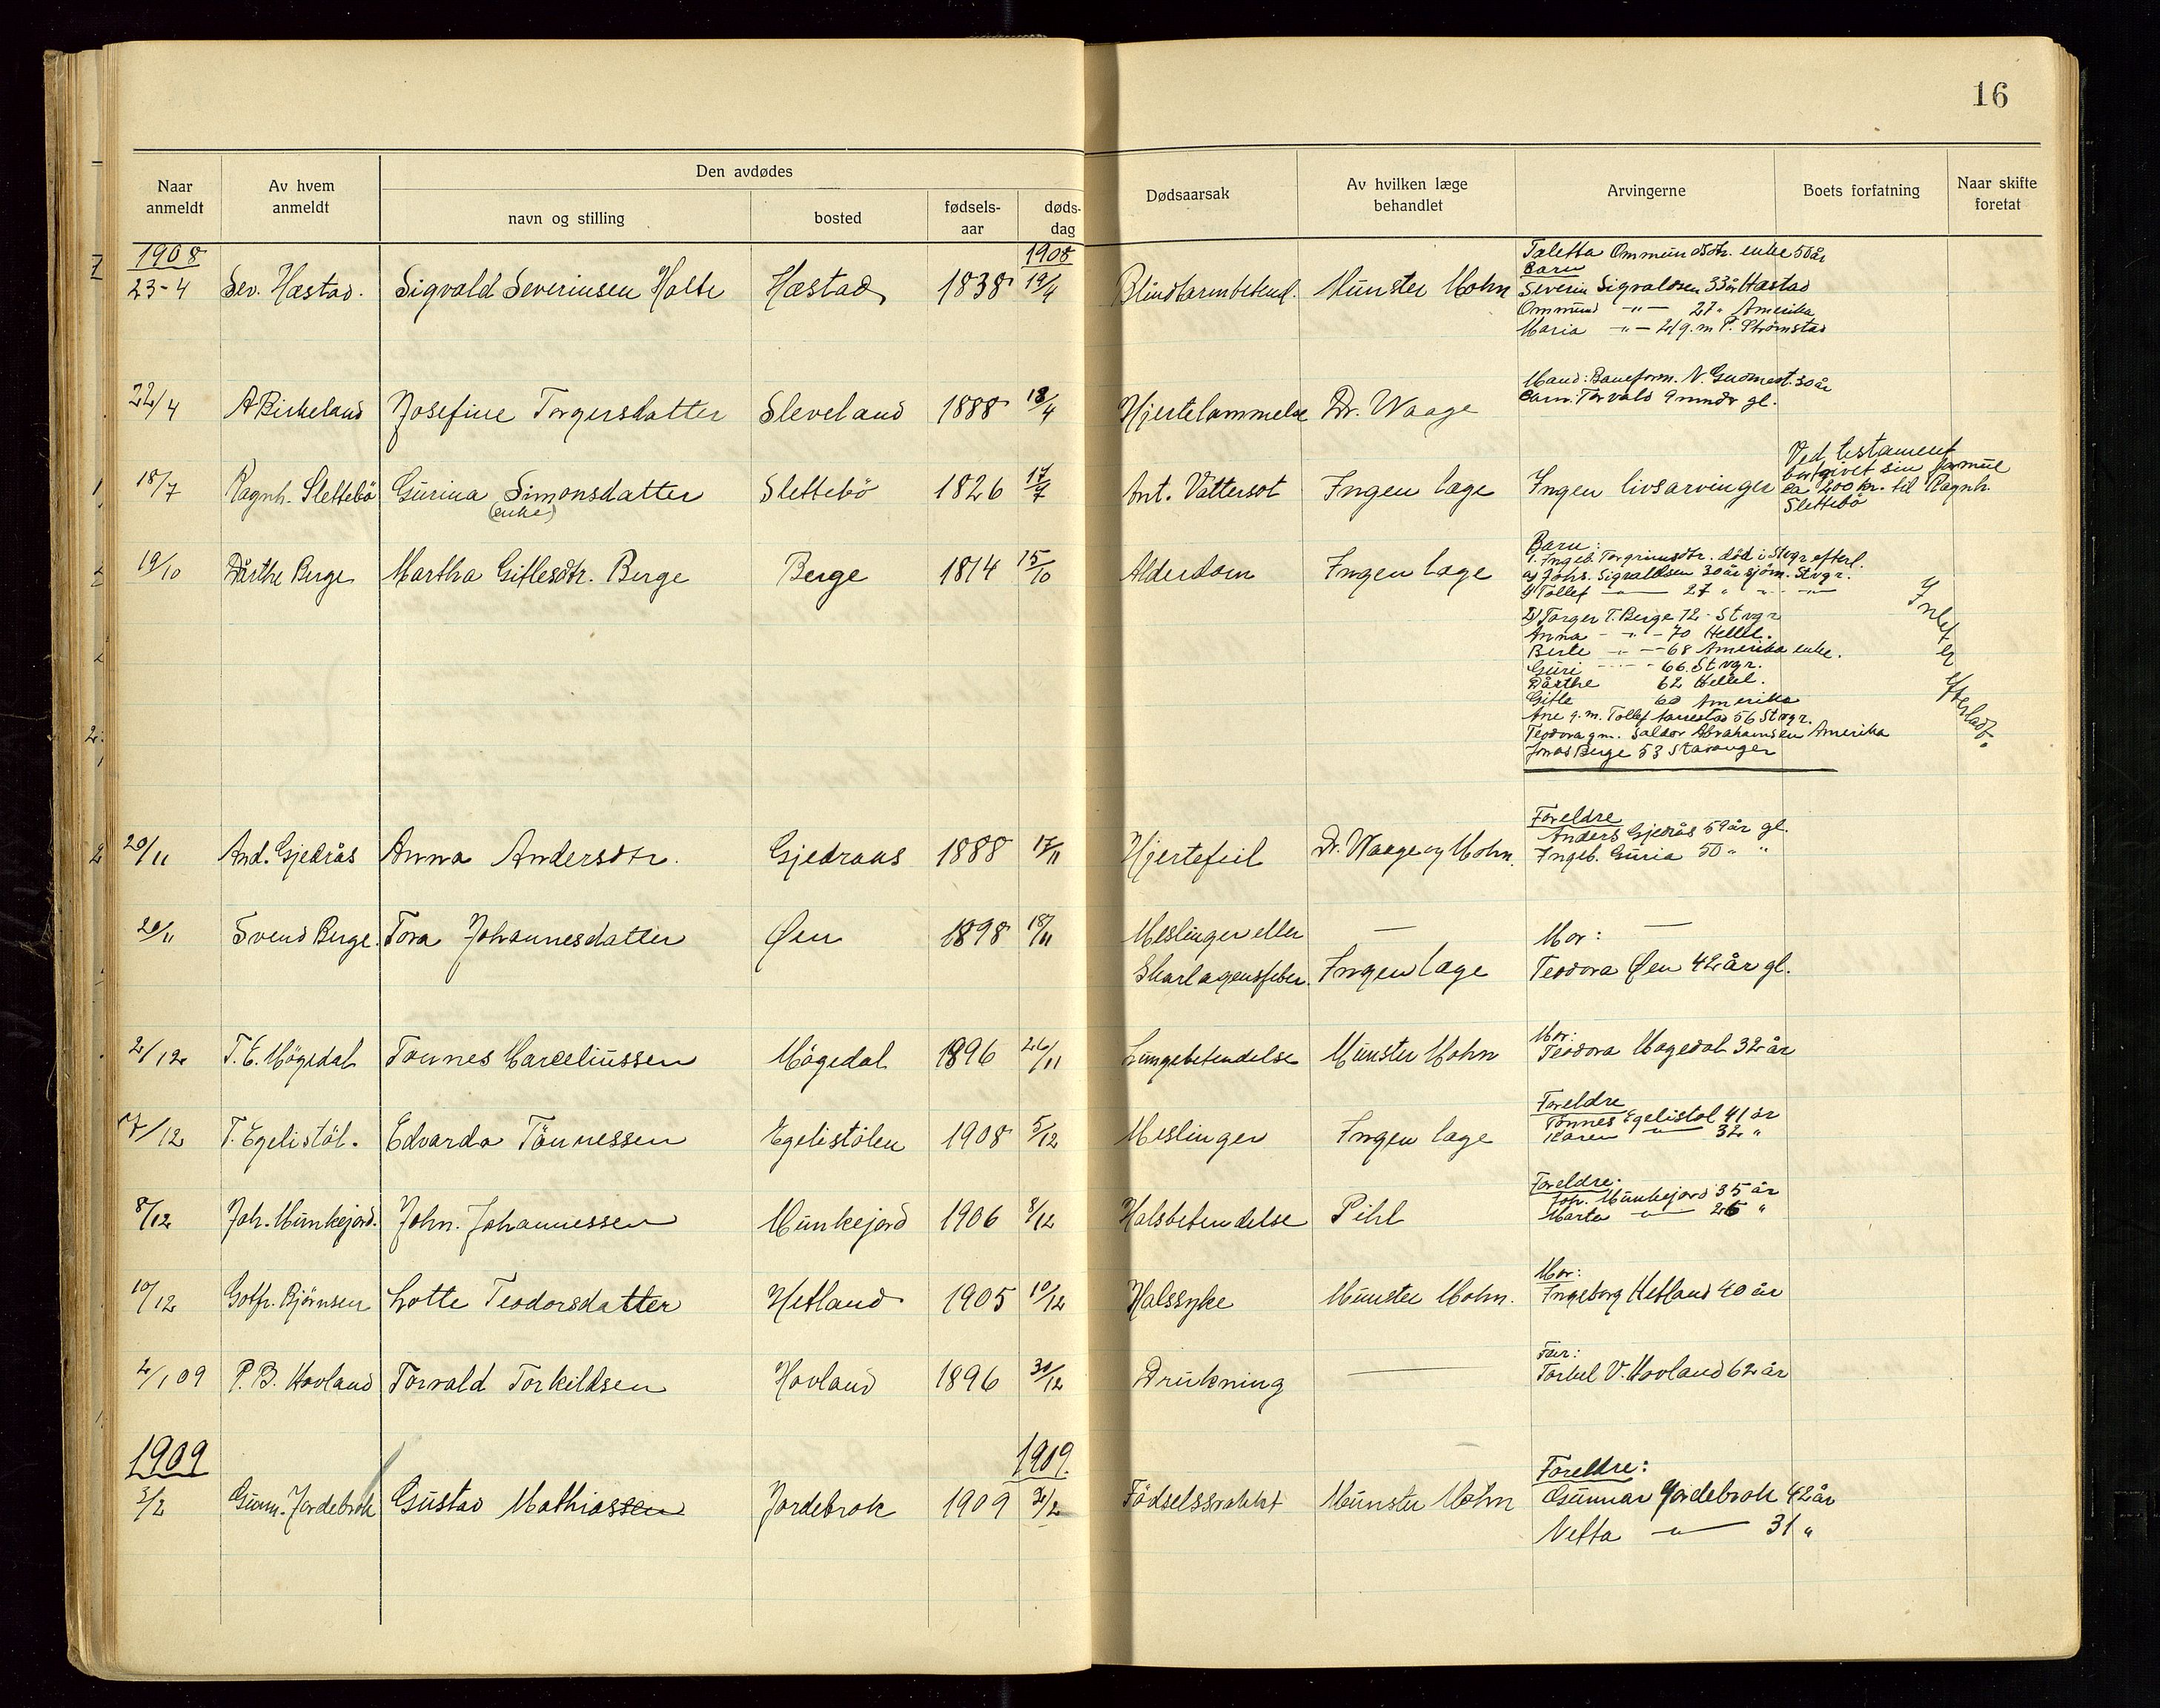 16
Naar anmeldt
Av hvem anmeldt
Den avdødes
navn og stilling
bosted
fødsels-aar
døds-dag
Dødsaarsak
Av hvilken læge behandlet
Arvingerne
Boets forfatning
Naar skifte foretat
1908
1908
23-4 Sev. Hæstad. Sigvald Severinsen Holte Hæstad 1838 19/4 Blindtarmbetend. Munster Mohn
Taletta Ommundsdtr. enke 50 år
Barn
Severin Sigvaldsen 33 år Hæstad
Ommund -"- 27 " Amerika
Maria -"- 21 g.m P. Strömstad
22/4 A Birkeland Josefine Torgersdatter Sleveland 1888 18/4 Hjertelammelse Dr. Waage
Mand: Baneform. N. Gudmest. 30 år
Barn: Torvald 9 mndr gl.
18/7 Ragnh. Slettebö Gurina Simonsdatter Slettebö 1826 17/7 Ant. Vattersot Ingen læge Ingen livsarvinger
(enke)
Ved testament
bortgivet sin formue
ca 200 kr. til Ragnh.
Slettebö
19/10 Dårthe Berge Martha Gitlesdtr. Berge Berge 1814 15/10 Alderdom Ingen læge
Barn:
1. Ingeb. Torgrimsdtr. död i Stvgr efterl.
a) Johs. Sigvaldsen 30 år sjöm. Stvgr.
b) Tollef —"— 27 " " —"—
2) Torger T. Berge 72 - Stvgr
Anna - " - 70 Hellel.
Berte - " - 68 Amerika enke.
Guri - " - 66. Stvgr.
Dårthe 62 Hellel.
Gitle 60 Amerika
Ane g.m. Tollef Aarrestad 56 Stvgr.
Teodora gm. Saldor Abrahamsen Amerika
Jonas Berge 53 Stavanger
Intet er efterladt.
20/11 And. Gjedrås Anna Andersdtr. Gjedraas 1888 17/11 Hjertefeil Dr. Waage og Mohn.
Foreldre
Anders Gjedrås 59 år gl.
Ingeb. Guria 50 " "
20/11 Svend Berge. Tora Johannesdatter Øen 1898 18/11 Meslinger eller — Mor: —
Skarlagensfeber. Ingen læge Teodora Øen 42 år gl.
2/12 T. E. Mögedal Tonnes Marceliussen Mögedal 1896 26/11 Lungebetendelse Munster Mohn
Mor:
Teodora Mogedal 32 år
7/12 T. Egelistöl. Edvarda Tönnessen Egelistölen 1908 5/12 Meslinger Ingen læge
Foreldre
Tönnes Egelistöl 41 år
Karen —"— 32 "
8/12 Joh. Munkejord. John. Johannessen Munkejord 1906 8/12 Halsbetendelse Pihl
Foreldre.
Joh. Munkejord 35 år
Marta —"— 26 "
10/12 Gotfr. Björnsen Lotte Teodorsdatter Hetland 1905 10/12 Halssyke Munster Mohn.
Mor:
Ingeborg Hetland 40 år
2/1 09 P. B. Hovland Torvald Torkildsen Hovland 1896 30/12 Drukning —
Far:
Torkel V. Hovland 62 år
1909
1909.
3/2 Gunn. Jordebrok Gustav Mathiassen Jordebrok 1909 2/2 Födselssvakhet Munster Mohn
Foreldre:
Gunnar Jordebrok 42 år
Netta —"— 31 "